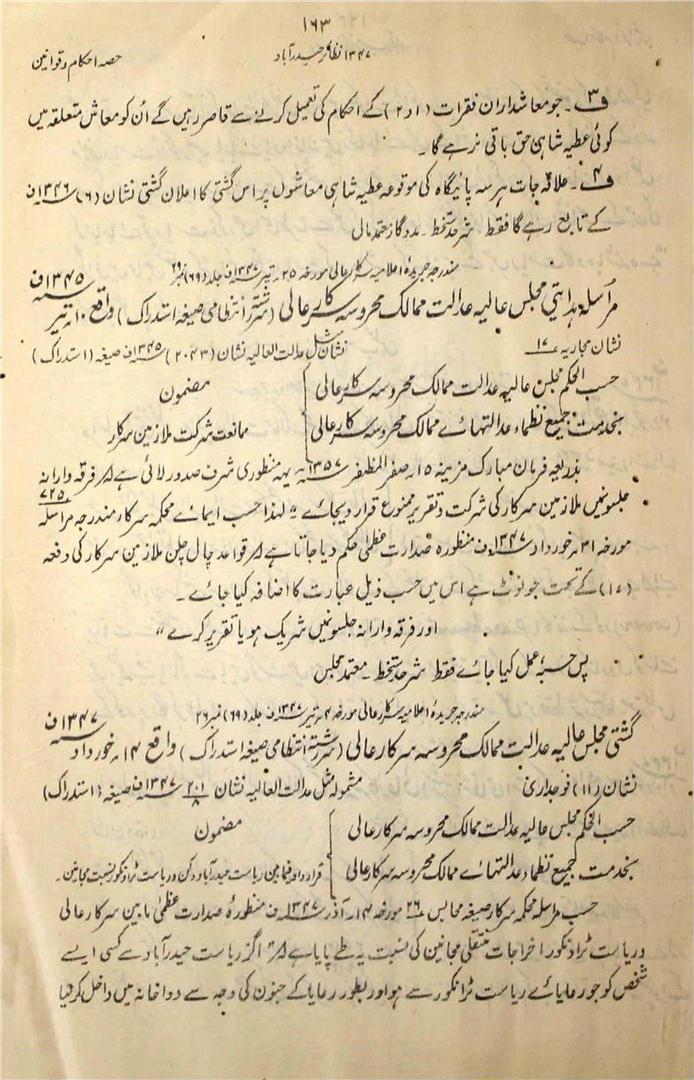 ۱۶۳
۱۳۴۷ نظائر حیدرآباد
حصہ احکام و قوانین
ف۳۔ جو معاشداران فقرات (۱ و ۲) کے احکام کی تعمیل کرنے سے قاصر رہیں گے اُن کو معاش متعلقہ میں
کوئی عطیہ شاہی حق باقی نہ رہے گا۔
ف۴۔ علاقہ جات ہر سہ پائیگاہ کی موقوعہ عطیہ شاہی معاشوں پر اس گشتی کا اعلان گشتی نشان (۶) ۱۳۴۶ ف
کے تابع رہے گا فقط شرحدستخط۔ مددگار معتمد مال
مندرجہ جریدۂ اعلامیہ سرکار عالی مورخہ ۲۵۔ تیر ۱۳۴۷ ف جلد (۶۹) نمبر ۲۹
مراسلہ ہدایتی مجلس عالیہ عدالت ممالک محروسہ سرکار عالی (سررشتہ انتظامی صیغہ استدراک) واقع ۱۰۔ تیر ۱۳۴۵ ف
نشان مجاریہ ۱۷
نشان مثل عدالت العالیہ نشان (۲۰۴۳) ۱۳۴۵ ف صیغہ (استدراک)
حسب الحکم مجلس عالیہ عدالت ممالک محروسہ سرکار عالی
مضمون
بخدمت جمیع نظماء عدالتہائے ممالک محروسہ سرکار عالی
ممانعت شرکت ملازمین سرکار
بذریعہ فرمان مبارک مزینہ ۱۵۔ صفر المظفر ۱۳۵۷ یہ منظوری شرف صدور لائی ہے کہ فرقہ وارانہ
جلسوں میں ملازمین سرکار کی شرکت و تقریر ممنوع قرار دیجائے" لہذا حسب ایمائے محکمہ سرکار مندرجہ مراسلہ ۷۲۵
مورخہ ۳۱۔ خورداد ۱۳۴۷ ف منظورہ صدارت عظمیٰ حکم دیا جاتا ہے کہ قواعد چال چلن ملازمین سرکار کی دفعہ
(۱۷) کے تحت جو نوٹ ہے اس میں حسب ذیل عبارت کا اضافہ کیا جائے۔
اور فرقہ وارانہ جلسوں میں شریک ہو یا تقریر کرے"
پس حسبہٗ عمل کیا جائے فقط شرحدستخط۔ معتمد مجلس
مندرجہ جریدۂ اعلامیہ سرکار عالی مورخہ ۴۔ تیر ۱۳۴۷ ف جلد (۶۹) نمبر ۲۶
گشتی مجلس عالیہ عدالت ممالک محروسہ سرکار عالی (سررشتہ انتظامی صیغہ استدراک) واقع ۱۴۔ خورداد ۱۳۴۷ ف
نشان (۱۱) فوجداری
مشمولہ مثل عدالت العالیہ نشان ۲۰۱/۸ ۱۳۴۷ ف صیغہ (استدراک)
حسب الحکم مجلس عالیہ عدالت ممالک محروسہ سرکار عالی
مضمون
بخدمت جمیع نظماء عدالتہائے ممالک محروسہ سرکار عالی
قرارداد فیمابین ریاست حیدرآباد دکن و ریاست ٹراونکور نسبت مجانین۔
حسب مراسلہ محکمہ سرکار صیغہ مجالس ۲۶ مورخہ ۱۴۔ آذر ۱۳۴۷ ف منظورۂ صدارت عظمیٰ مابین سرکار عالی
و ریاست ٹراونکور اخراجات منتقلی مجانین کی نسبت یہ طے پایا ہے کہ" اگر ریاست حیدرآباد سے کسی ایسے
شخص کو جو رعایائے ریاست ٹراونکور سے ہو اور بطور رعایا کے جنون کی وجہ سے دواخانہ میں داخل کر دیا